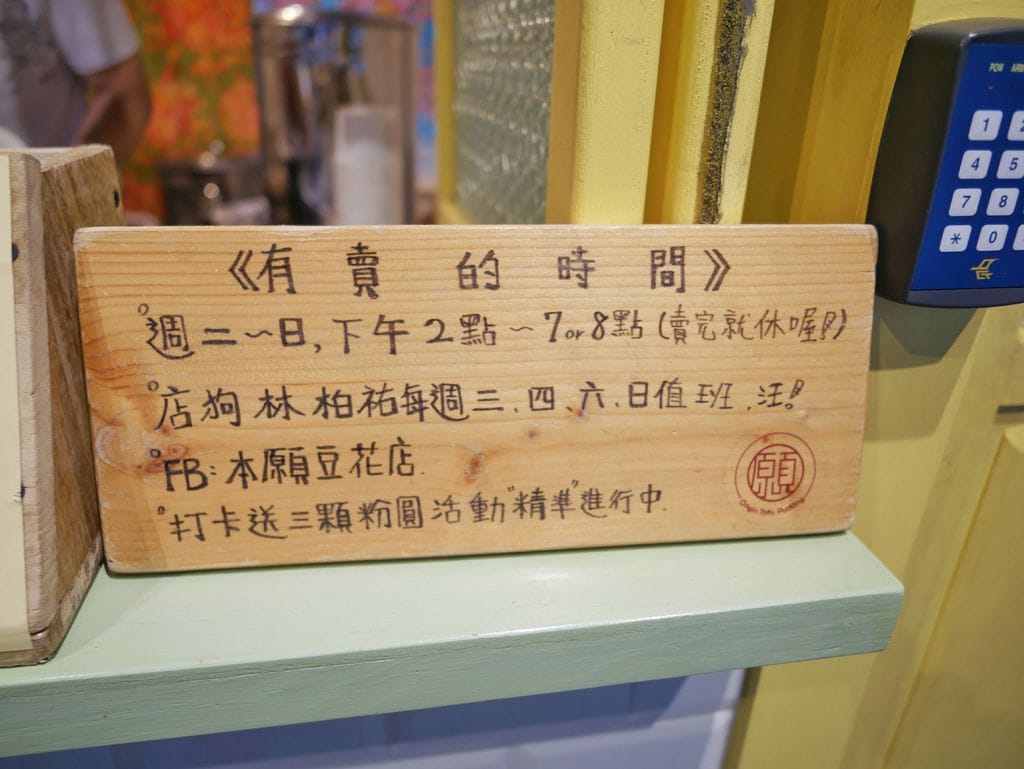 《有賣的時間》
°週二~日,下午2點~7or8點(賣完就休喔!!)
°店狗林柏祐每週三、四、六、日值班,汪!
°FB:本願豆花店.
°打卡送三顆粉圓活動"精準"進行中.
願
Origin Tofu Pudding
POW ARM
1 2
4 5
7 8
* 0